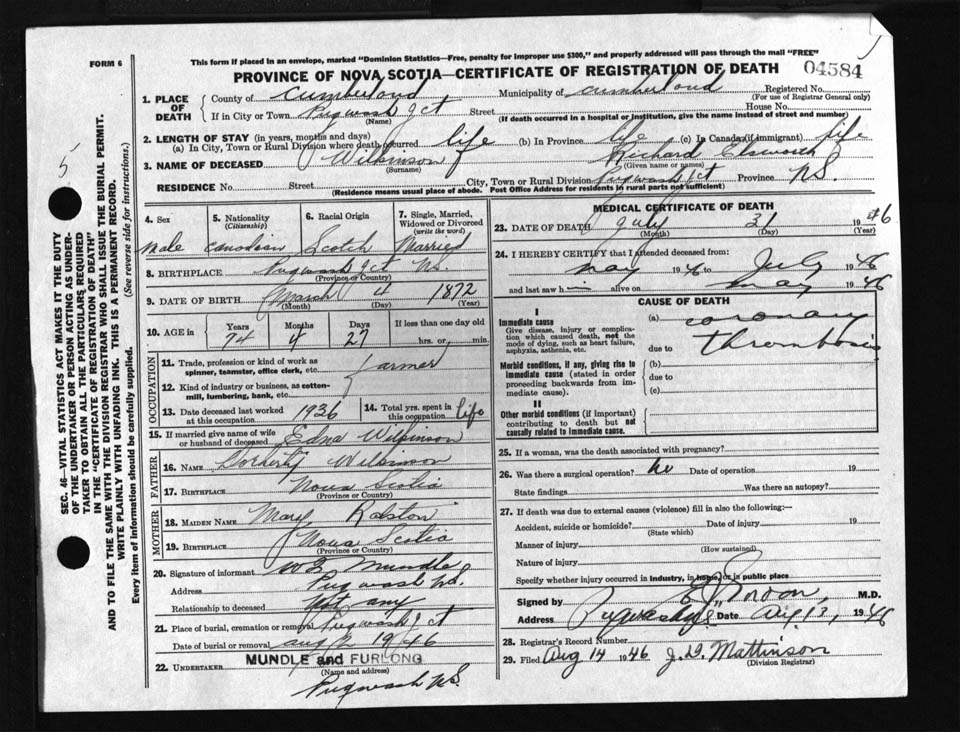 This form if placed in an envelope, marked "Dominion Statistics—Free, penalty for improper use $300," and properly addressed will pass through the mail "FREE"
FORM 6
PROVINCE OF NOVA SCOTIA—CERTIFICATE OF REGISTRATION OF DEATH
04584
5
SEC. 46—VITAL STATISTICS ACT MAKES IT THE DUTY
OF THE UNDERTAKER OR PERSON ACTING AS UNDER-
TAKER TO OBTAIN ALL THE PARTICULARS REQUIRED
IN THE "CERTIFICATE OF REGISTRATION OF DEATH"
AND TO FILE THE SAME WITH THE DIVISION REGISTRAR WHO SHALL ISSUE THE BURIAL PERMIT.
WRITE PLAINLY WITH UNFADING INK. THIS IS A PERMANENT RECORD.
Every item of information should be carefully supplied. (See reverse side for instructions.)
1. PLACE OF DEATH
County of Cumberland Municipality of Cumberland Registered No.
(For use of Registrar General only)
If in City or Town Pugwash Jct Street House No.
(Name) (If death occurred in a hospital or institution, give the name instead of street and number)
2. LENGTH OF STAY (in years, months and days)
(a) In City, Town or Rural Division where death occurred life (b) In Province life (c) In Canada (if immigrant) life
3. NAME OF DECEASED Wilkinson Richard
(Surname) (Given name or names)
RESIDENCE No. Street City, Town or Rural Division Pugwash Jct Province N.S.
(Residence means usual place of abode. Post Office Address for residents in rural parts not sufficient)
4. Sex Male
5. Nationality (Citizenship) Canadian
6. Racial Origin Scotch
7. Single, Married, Widowed or Divorced (write the word) Married
8. BIRTHPLACE Pugwash Jct N.S.
(Province or Country)
9. DATE OF BIRTH March 4 1872
(Month) (Day) (Year)
10. AGE in Years Months Days If less than one day old
74 4 27 hrs. or min.
OCCUPATION
11. Trade, profession or kind of work as spinner, teamster, office clerk, etc. farmer
12. Kind of industry or business, as cotton-mill, lumbering, bank, etc.
13. Date deceased last worked at this occupation 1936
14. Total yrs. spent in this occupation life
15. If married give name of wife or husband of deceased Edna Wilkinson
FATHER
16. NAME Dorherty Wilkinson
17. BIRTHPLACE Nova Scotia
(Province or Country)
MOTHER
18. MAIDEN NAME Mary Ralston
19. BIRTHPLACE Nova Scotia
(Province or Country)
20. Signature of informant Mundle
Address Pugwash N.S.
Relationship to deceased Not any
21. Place of burial, cremation or removal Pugwash Jct
Date of burial or removal Aug 2 1946
22. UNDERTAKER MUNDLE and FURLONG
(Name and address)
Pugwash N.S.
MEDICAL CERTIFICATE OF DEATH
23. DATE OF DEATH July 31 1946
(Month) (Day) (Year)
24. I HEREBY CERTIFY that I attended deceased from:
May 1946 to July 1946
and last saw h im alive on May 1946
CAUSE OF DEATH
I
Immediate cause
Give disease, injury or complication which caused death, not the mode of dying, such as heart failure, asphyxia, asthenia, etc.
(a) coronary
due to thrombosis
Morbid conditions, if any, giving rise to immediate cause (stated in order proceeding backwards from immediate cause).
(b)
due to
(c)
II
Other morbid conditions (if important) contributing to death but not causally related to immediate cause.
25. If a woman, was the death associated with pregnancy?
26. Was there a surgical operation? no Date of operation 19
State findings Was there an autopsy?
27. If death was due to external causes (violence) fill in also the following:—
Accident, suicide or homicide? Date of injury 19
(State which)
Manner of injury
(How sustained)
Nature of injury
Specify whether injury occurred in industry, in home, or in public place
Signed by M.D.
Address Pugwash N.S. Date Aug 13, 1946
28. Registrar's Record Number
29. Filed Aug 14 1946 J. D. Mattinson
(Division Registrar)